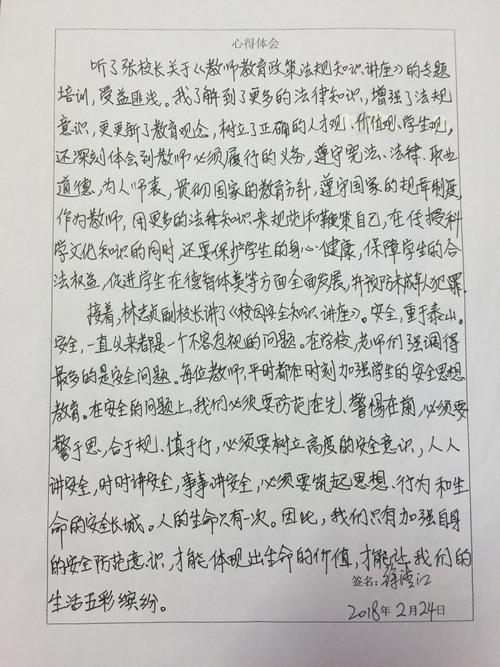 心得体会
听了张校长关于《教师教育政策法规知识讲座》的专题
培训，受益匪浅。我了解到了更多的法律知识，增强了法规
意识，更更新了教育观念，树立了正确的人才观、价值观、学生观，
还深刻体会到教师必须履行的义务，遵守宪法、法律、职业
道德，为人师表，贯彻国家的教育方针，遵守国家的规章制度，
作为教师，用更多的法律知识来规范和鞭策自己，在传授科
学文化知识的同时，还要保护学生的身心健康，保障学生的合
法权益，促进学生在德智体美等方面全面发展，并预防未成年人犯罪。
接着，林志贞副校长讲了《校园安全知识讲座》。安全，重于泰山。
安全，一直以来都是一个不容忽视的问题。在学校，老师们强调得
最多的是安全问题。每位教师，平时都在时刻加强学生的安全思想
教育。在安全的问题上，我们必须要防范在先、警惕在前，必须要
警于思，合于规、慎于行，必须要树立高度的安全意识，人人
讲安全，时时讲安全，事事讲安全，必须要筑起思想、行为和生
命的安全长城。人的生命只有一次。因此，我们只有加强自身
的安全防范意识，才能体现出生命的价值，才能让我们的
生活五彩缤纷。
签名：徐
2018年2月24日